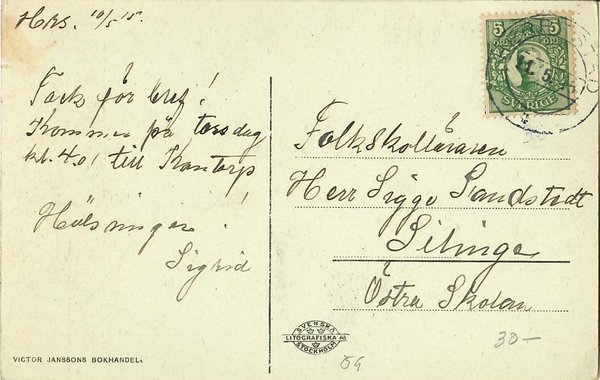 Hrs. 10/5 15.
Tack för bref!
Kommer på torsdag
kl. 4.01 till Kantorp
Hälsningar!
Sigrid
5 5
SVERIGE
Folkskolläraren
Herr Sigge Sandstedt
Silinge
Östra Skolan
SVENSKA
LITOGRAFISKA AB
STOCKHOLM
VICTOR JANSSONS BOKHANDEL.
30—